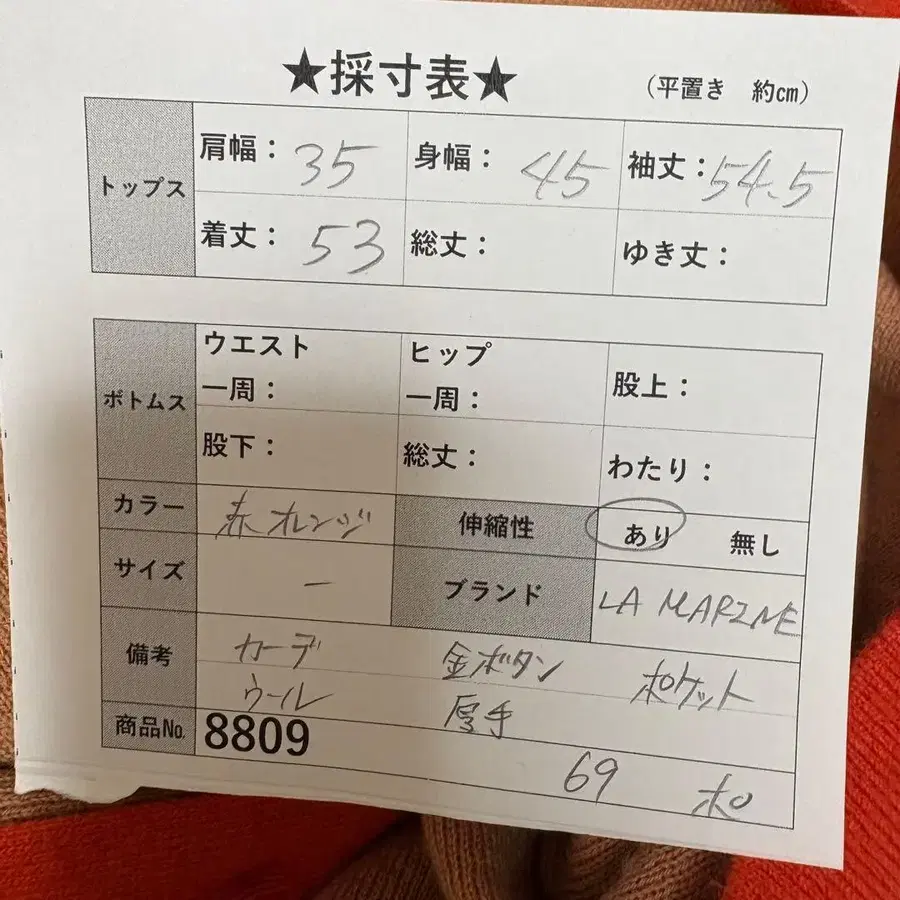 ★採寸表★
(平置き 約cm)
トップス
肩幅: 35
身幅: 45
袖丈: 54.5
着丈: 53
総丈:
ゆき丈:
ボトムス
ウエスト
一周:
ヒップ
一周:
股上:
股下:
総丈:
わたり:
カラー
赤 オレンジ
伸縮性
あり 無し
サイズ
ー
ブランド
LA MARINE
備考
カーデ 金ボタン ポケット
ウール 厚手
商品No. 8809
69 ホ